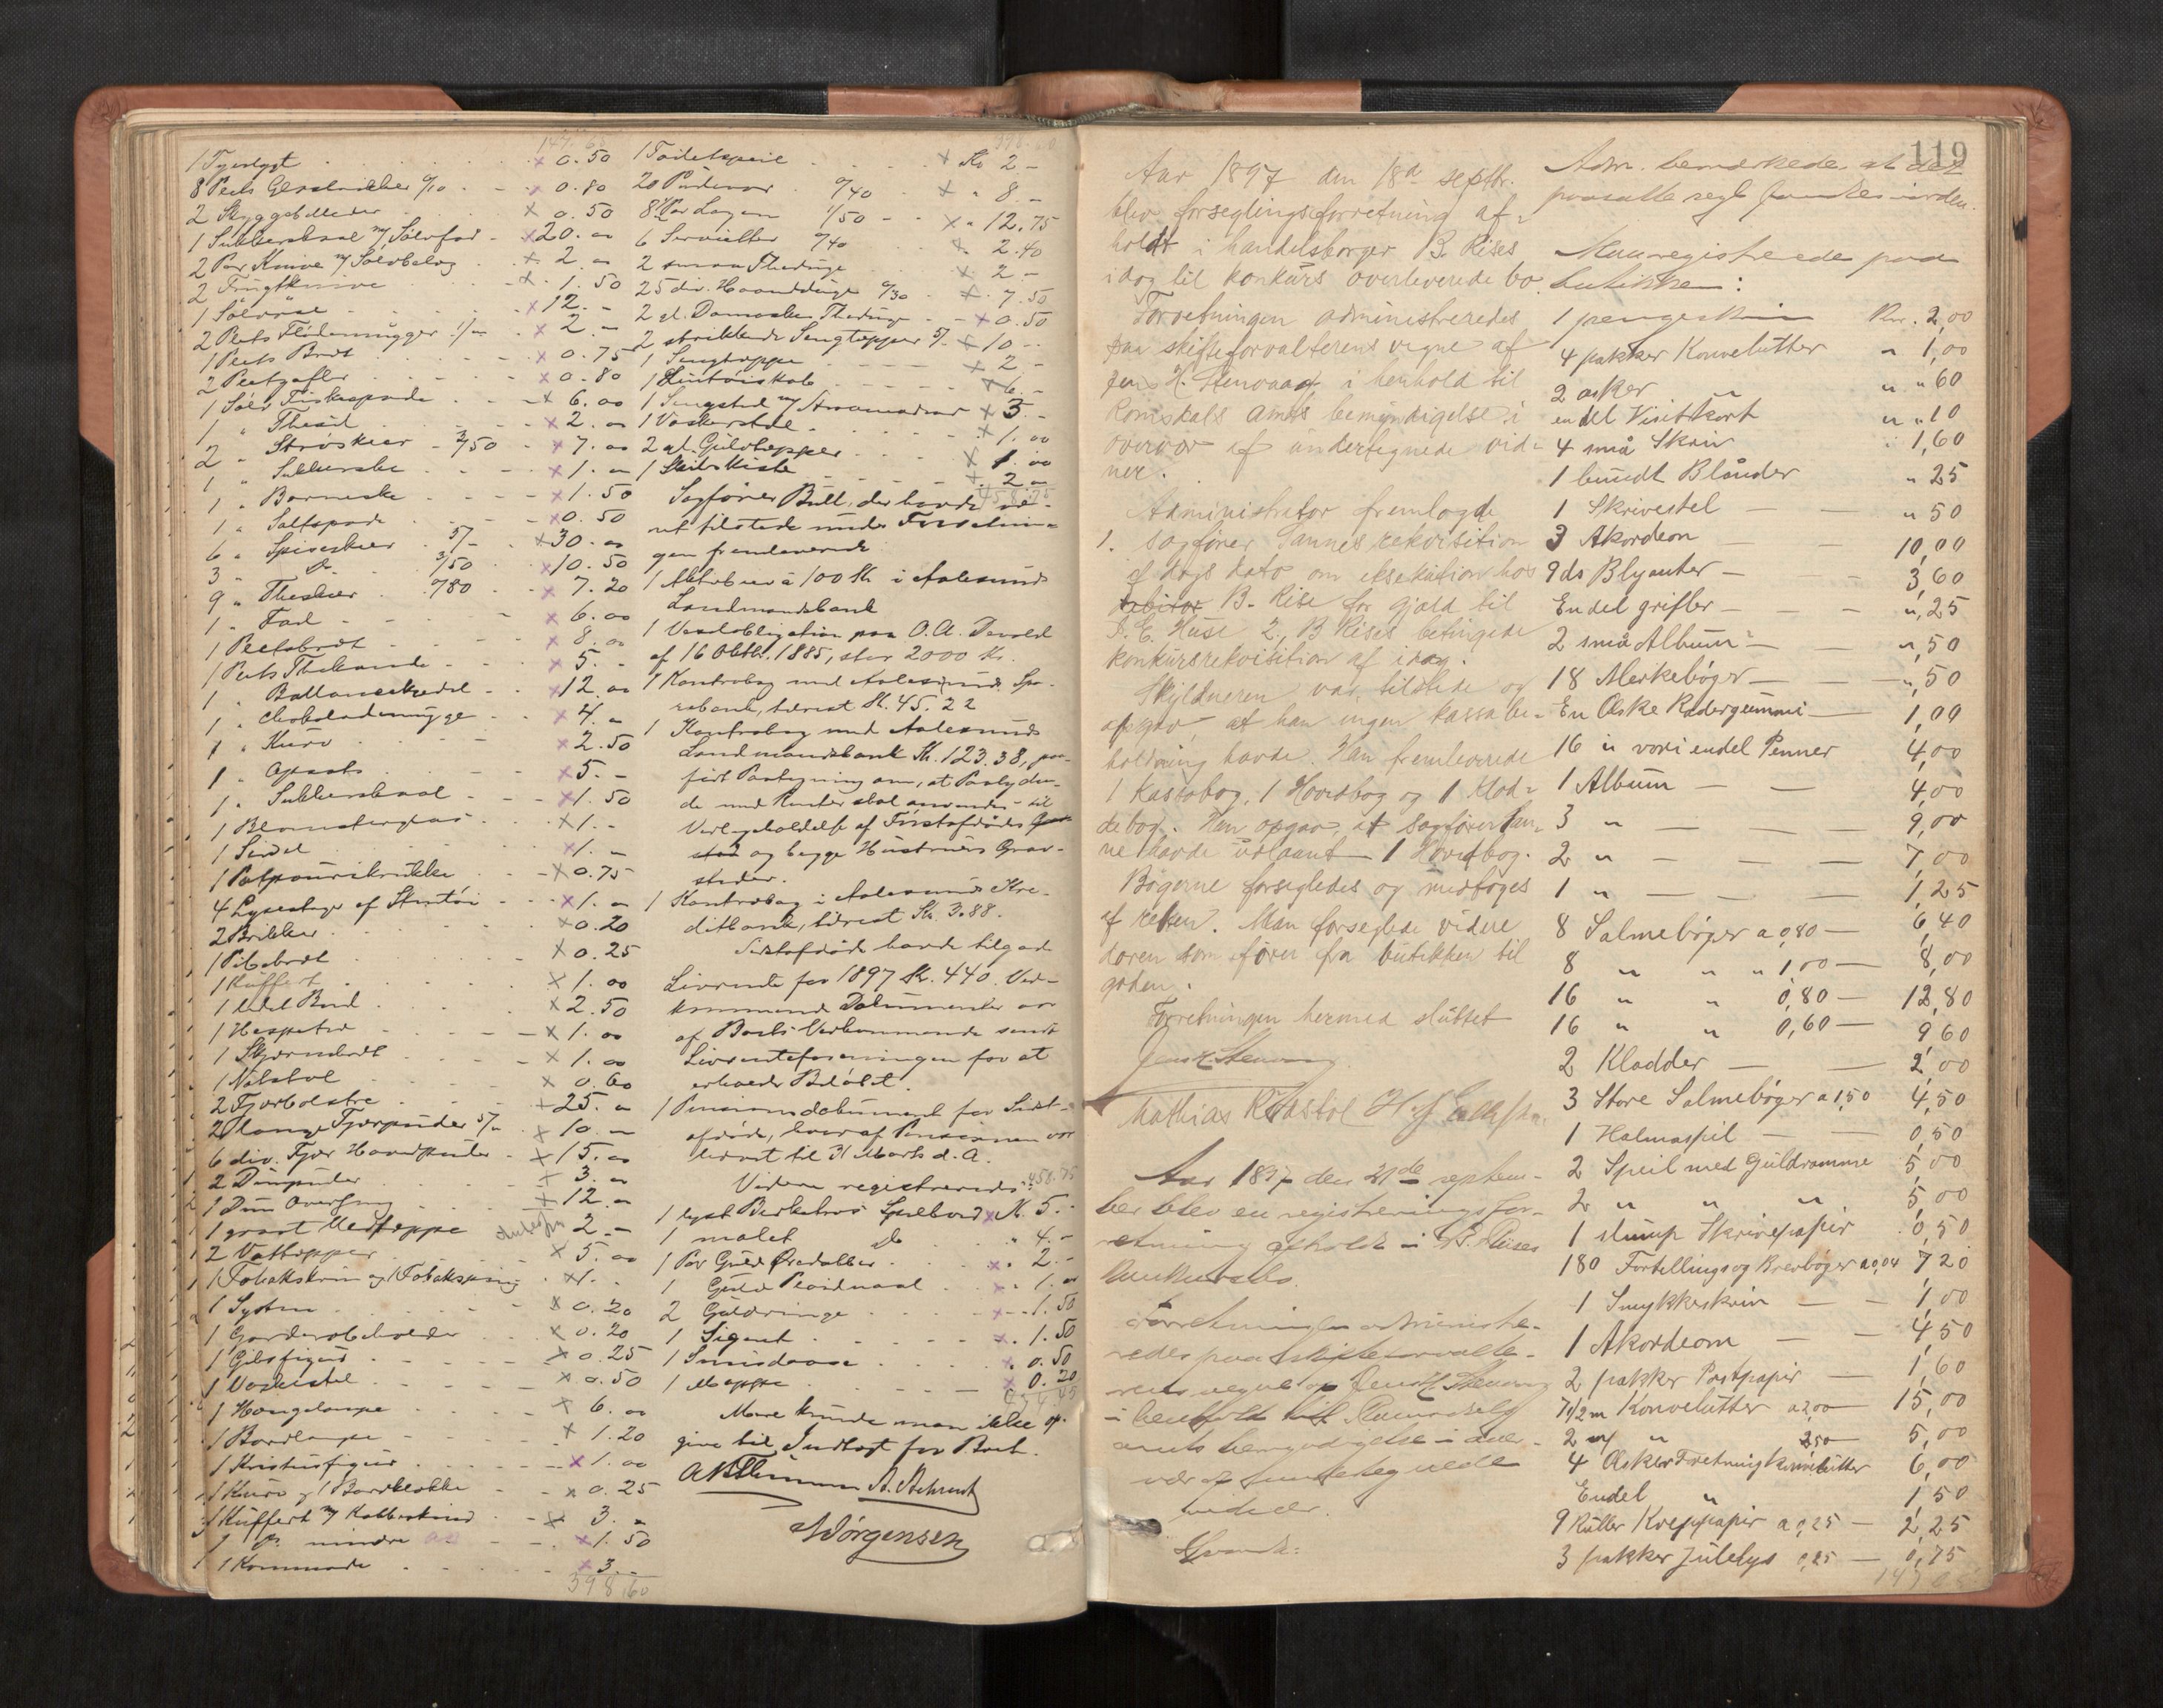 147.65
1 Tyverlygt . . . . × 0.50
8 Pects Glasbrikker 0/10 - - × 0.80
2 Skyggebilleder . × 0.50
1 Sukkerskaal m/ Sølvfad - × 20.00
2 Par Knive m/ Sølvbelæg . × 2.00
2 Frugtknive . . × 1.50
1 Sølvøse × 12.-
2 Plets Flødemugger 1/00 × 2.-
1 Plets Bret × 0.75
2 Pletgafler × 0.80
1 Sølv Fiskespade × 6.00
1 " Thesil × 2.00
2 " Strøskeer - 3/50 × 7.00
1 " Sukkerske × 1.00
1 " Barneske × 1.50
1 " Saltspade × 0.50
6 " Spiseskeer 5/- × 30.00
3 " do 3/50 × 10.50
9 " Theskeer 0/80 × 7.20
1 " Fad × 6.00
1 Pletsbret × 8.00
1 Plets Thekande × 5.-
1 " Ballonskedel × 12.00
1 " Chokolademugge × 4.00
1 " Kurv × 2.50
1 " Opsats × 5.-
1 " Sukkerskaal × 1.50
1 Blomsterglas × 1.-
1 Seidel × 1.-
1 Potpourrikrukke × 0.75
4 Lysestager af Stentøi × 1.00
2 Brikker × 0.20
1 Pibebret × 0.25
1 Kuffert × 1.00
1 lidet Bord × 2.50
1 Hespetræ × 1.00
1 Skjærmbret × 1.00
1 Natstol × 0.60
2 Fjærbolstre × 25.00
2 lange Fjærpuder 5/00 × 10.00
6 div. Fjær Hovedpuder × 15.00
2 Dunpuder × 3.00
1 Dun Overseng × 12.00
1 graat Uldteppe 2.-
2 Vattepper × 5.00
1 Tobakskrin og 1 Tobakspung × 1.-
1 Systen × 0.20
1 Garderobeholder × 0.20
1 Gibsfigur × 0.25
1 Vaskestel × 0.50
1 Hængelampe × 6.00
1 Bordlampe × 1.20
1 Kristusfigur × 1.00
1 Kurv og 1 Bordklokke × 0.25
1 Kuffert m/ Kobbeskind × 3.00
1 do mindre × 1.50
1 Kommode × 3.-
398.60
1 Toiletspeil × Kr 2 -
20 Pudevar 0/40 × " 8 -
8 1/2 Par Lagen 1/50 - - × " 12.75
6 Servietter 0/40 × 2.40
2 smaa Theduge × 2 -
25 div. Haandduge 0/30 × 7.50
2 gl. Damaskes Theduge × 0.50
2 strikkede Sengtepper 5/- × 10 -
1 Sengteppe × 2 -
1 Lintøiskab × 6.-
1 Sengsted m/ × 3.-
1 Vaskestol × 1.00
2 gl. Gulvtepper × 1.00
1 Skibskiste × 2.00
458.75
Sagfører Bull, der havde væ-
ret tilstede under Forretnin-
gen fremleverede
1 Aktiebrev à 100 Kr i Aalesunds
Landmandsbank
1 Vexelobligation paa O. A. Devold
af 16 Oktbr. 1885, stor 2000 Kr.
1 Kontrabog med Aalesunds Spa-
rebank, tilrest Kr. 45.22
1 Kontrabog med Aalesunds
Landmandsbank Kr. 123.38, paa-
ført Paategning om, at Paalyden-
de med Renter skal anvendes til
Vedligeholdelse af Førstafdødes
og begge Hustruers Grav-
steder.
1 Kontrabog i Aalesunds Kre-
ditbank, tilrest Kr. 3.88.
Sidstafdøde havde tilgode
Livrente for 1897 Kr. 440. Ved-
kommende Dokumenter var
af Boets Vedkommende sendt
Livrenteforeningen for at
erholde Beløbet.
1 Pensionsdokument for Sidst-
afdøde, hvoraf Pensionen var
hævet til 31 Marts d. A.
Videre registreredes: 458.75
1 lyst Birketræs Spillebord × K. 5.-
1 malet do " 4.-
1 Par Guld Øredobber × . 2.-
1 Guld × . 1.00
2 Guldringe × . 1.50
1 Signet × . 1.50
1 Snusdaase × . 0.50
1 Mappe × 0.20
474.45
Mere kunde man ikke op-
give til Indtægt for Boet.
JJørgensen
119
Aar 1897 den 18de septbr.
blev forseglingsforretning af-
holdt i handelsborger B. Rises
idag til konkurs overleverede bo
Forretningen administreredes
paa skifteforvalterens vegne af
Jens H. Stenvaag i henhold til
Romsdals amts bemyndigelse i
overvær af undertegnede vid-
ner.
Administrator fremlagde
1. sagfører Sannes rekvisition
af dags dato om eksekution hos
debitor B. Rise for gjæld til
P. E. Huse 2, B Rises betingede
konkursrekvisition af idag.
Skyldneren var tilstede og
opgav, at han ingen kassabe-
holdning havde. Han fremleverede
1 Kassabog, 1 Hovedbog og 1 Klad-
debog. Han opgav, at Sagfører San-
ne havde udlaant 1 Hovedbog.
Bøgerne forsegledes og medtoges
af retten. Man forseglede videre
døren som fører fra butikken til
gaden.
Forretningen hermed sluttet
Jens H. Stenvaag
Mathias K Hasbol
Aar 1897 den 21de septem-
ber blev en registreringsfor-
retning afholdt i B. Rises
konkursbo.
Forretningen administre-
redes paa skifteforvalte-
rens vegne af Jens H. Stenvaag
i henhold til Romsdals
amts bemyndigelse i over-
vær af undertegnede
vidner.
Adm. bemærkede at det
paasatte segl fandtes i orden.
Man registrerede paa
butikken:
1 pengeskrin Kr. 2,00
4 pakker Konvelutter " 1,00
2 æsker " " " 60
en del Visitkort " " 10
4 små Skrin " 1,60
1 bundt Blånder " 25
1 Skrivestel — — " 50
3 Akordeon — — 10,00
9 ds Blyanter — — 3,60
En del grifler — — — ",25
2 små Album — — ",50
18 Merkebøger — — ",50
En Æske Radergummi — 1,00
16 " vori endel Penner 4,00
1 Album — — 4,00
3 " — — — 9,00
2 " — — — 7,00
1 " — — — 1,25
8 Salmebøger a 0,80 — 6,40
8 " " " 1,00 — 8,00
16 " " 0,80 — 12,80
16 " " 0,60 — 9,60
2 Kladder — — 2,00
3 Store Salmebøger a 1,50 4,50
1 Halmaspil — — 0,50
2 Speil med Guldramme 5,00
2 " " " 5,00
1 slump Skrivepapir 0,50
180 Fortellings og Brevbøger a 0,04 7,20
1 Smykkeskrin — — 1,00
1 Akordeom — — 4,50
2 pakker Postpapir — 1,60
7 1/2 m Konvelutter a 2,00 — 15,00
2 m " 2,50 — 5,00
4 Æsker Fretningkonvelutter 6,00
Endel " 1,50
9 Ruller Kreppapir a 0,25 — 2,25
3 pakker Julelys 0,25 — 0,75